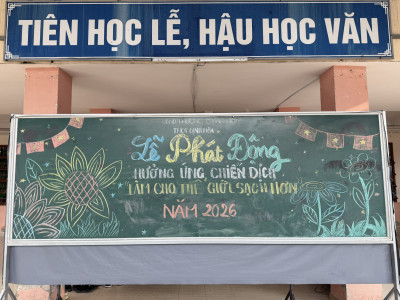 TIÊN HỌC LỄ, HẬU HỌC VĂN
Lễ Phát Động
HƯỞNG ỨNG CHIẾN DỊCH
LÀM CHO THẾ GIỚI SẠCH HƠN
NĂM 2026